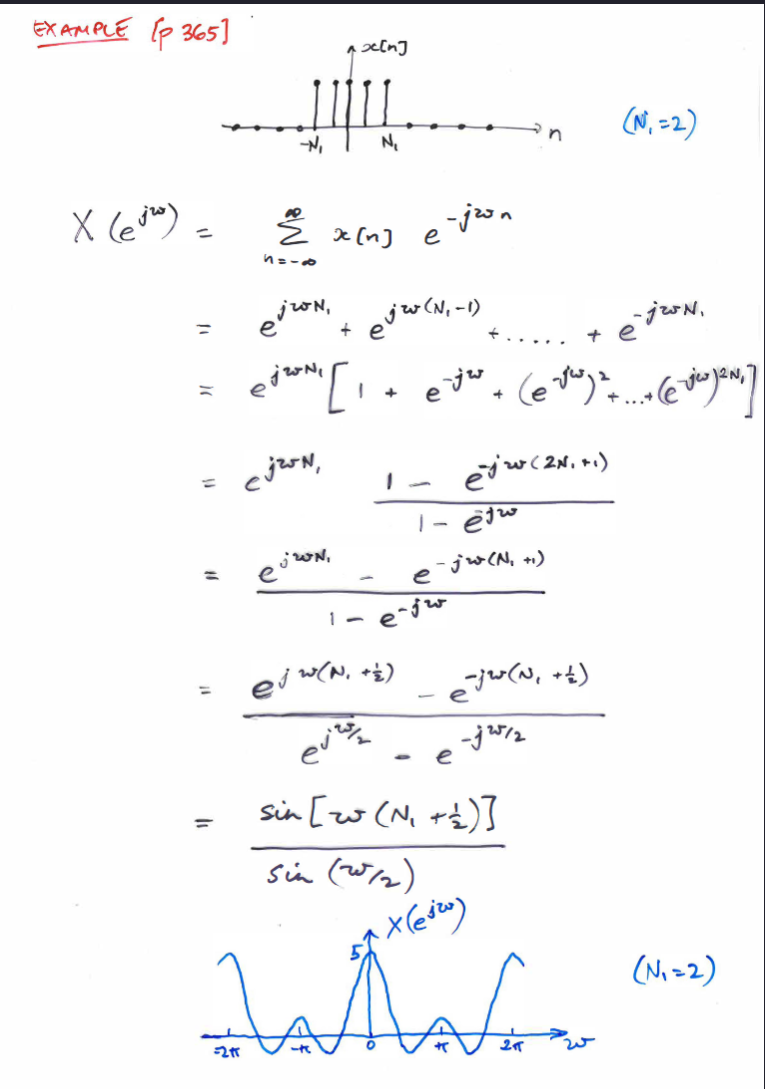 EXAMPLE [p 365]
x[n]
-N₁ N₁ n (N₁=2)
X(e^{jω}) = ∑_{n=-∞}^{∞} x[n] e^{-jωn}
= e^{jωN₁} + e^{jω(N₁-1)} +...... + e^{-jωN₁}
= e^{jωN₁} [1 + e^{-jω} + (e^{-jω})² + ...+ (e^{-jω})^{2N₁}]
= e^{jωN₁} \frac{1 - e^{-jω(2N₁+1)}}{1 - e^{-jω}}
= \frac{e^{jωN₁} - e^{-jω(N₁+1)}}{1 - e^{-jω}}
= \frac{e^{jω(N₁+½)} - e^{-jω(N₁+½)}}{e^{jω/2} - e^{-jω/2}}
= \frac{sin[ω(N₁+½)]}{sin(ω/2)}
X(e^{jω})
5
(N₁=2)
-2π -π 0 π 2π ω